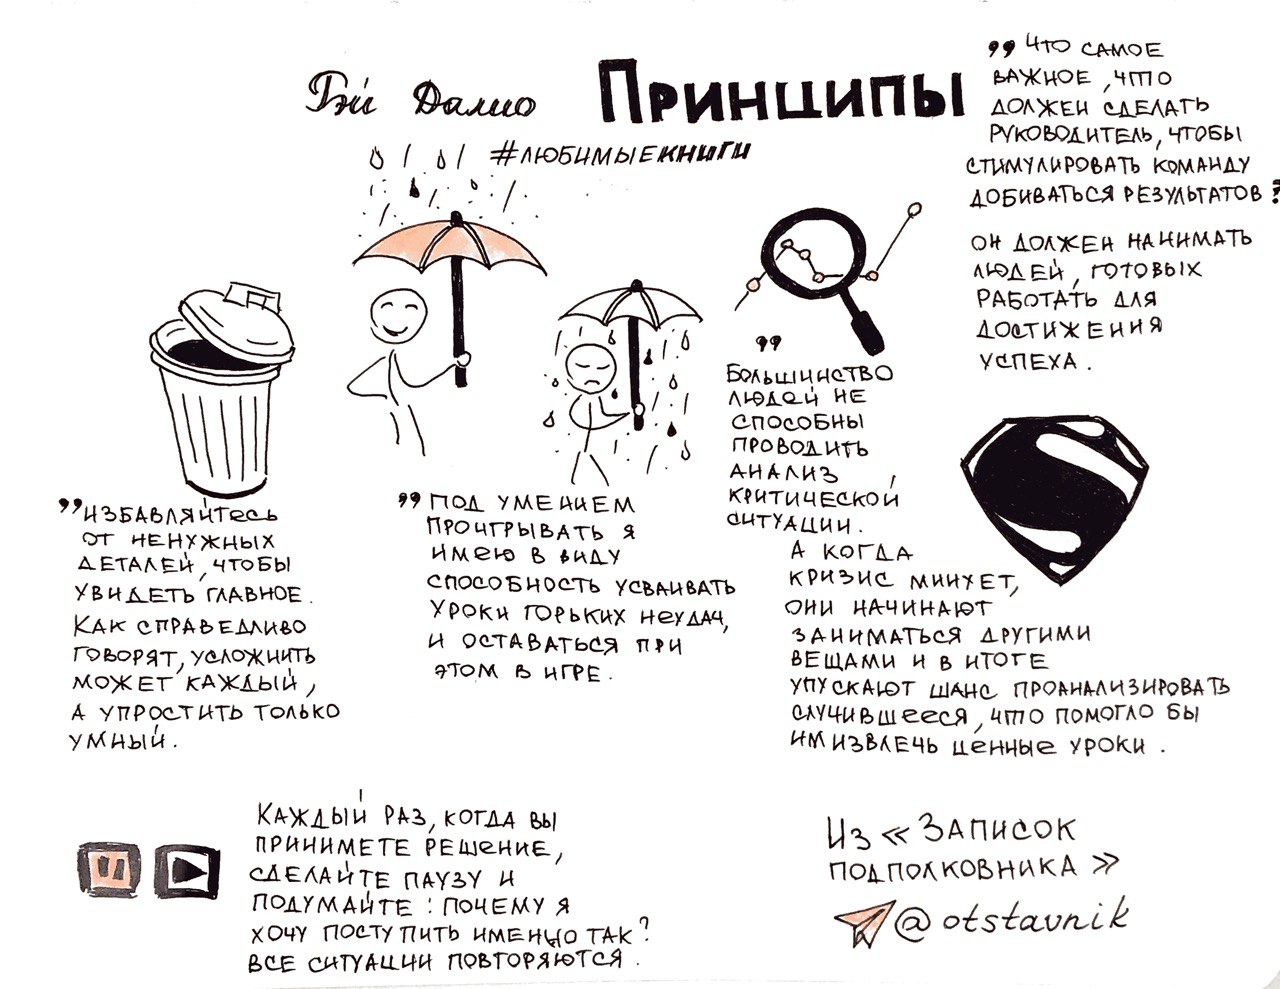 Рэй Далио ПРИНЦИПЫ
#ЛЮБИМЫЕКНИГИ
” ЧТО САМОЕ
ВАЖНОЕ, ЧТО
ДОЛЖЕН СДЕЛАТЬ
РУКОВОДИТЕЛЬ, ЧТОБЫ
СТИМУЛИРОВАТЬ КОМАНДУ
ДОБИВАТЬСЯ РЕЗУЛЬТАТОВ?
ОН ДОЛЖЕН НАНИМАТЬ
ЛЮДЕЙ, ГОТОВЫХ
РАБОТАТЬ ДЛЯ
ДОСТИЖЕНИЯ
УСПЕХА.
” ИЗБАВЛЯЙТЕСЬ
ОТ НЕНУЖНЫХ
ДЕТАЛЕЙ, ЧТОБЫ
УВИДЕТЬ ГЛАВНОЕ.
КАК СПРАВЕДЛИВО
ГОВОРЯТ, УСЛОЖНИТЬ
МОЖЕТ КАЖДЫЙ,
А УПРОСТИТЬ ТОЛЬКО
УМНЫЙ.
” ПОД УМЕНИЕМ
ПРОИГРЫВАТЬ Я
ИМЕЮ В ВИДУ
СПОСОБНОСТЬ УСВАИВАТЬ
УРОКИ ГОРЬКИХ НЕУДАЧ,
И ОСТАВАТЬСЯ ПРИ
ЭТОМ В ИГРЕ.
”
БОЛЬШИНСТВО
ЛЮДЕЙ НЕ
СПОСОБНЫ
ПРОВОДИТЬ
АНАЛИЗ
КРИТИЧЕСКОЙ
СИТУАЦИИ.
А КОГДА
КРИЗИС МИНУЕТ,
ОНИ НАЧИНАЮТ
ЗАНИМАТЬСЯ ДРУГИМИ
ВЕЩАМИ И В ИТОГЕ
УПУСКАЮТ ШАНС ПРОАНАЛИЗИРОВАТЬ
СЛУЧИВШЕЕСЯ, ЧТО ПОМОГЛО БЫ
ИМ ИЗВЛЕЧЬ ЦЕННЫЕ УРОКИ.
КАЖДЫЙ РАЗ, КОГДА ВЫ
ПРИНИМЕТЕ РЕШЕНИЕ,
СДЕЛАЙТЕ ПАУЗУ И
ПОДУМАЙТЕ: ПОЧЕМУ Я
ХОЧУ ПОСТУПИТЬ ИМЕННО ТАК?
ВСЕ СИТУАЦИИ ПОВТОРЯЮТСЯ.
ИЗ «ЗАПИСОК
ПОДПОЛКОВНИКА»
@otstavnik